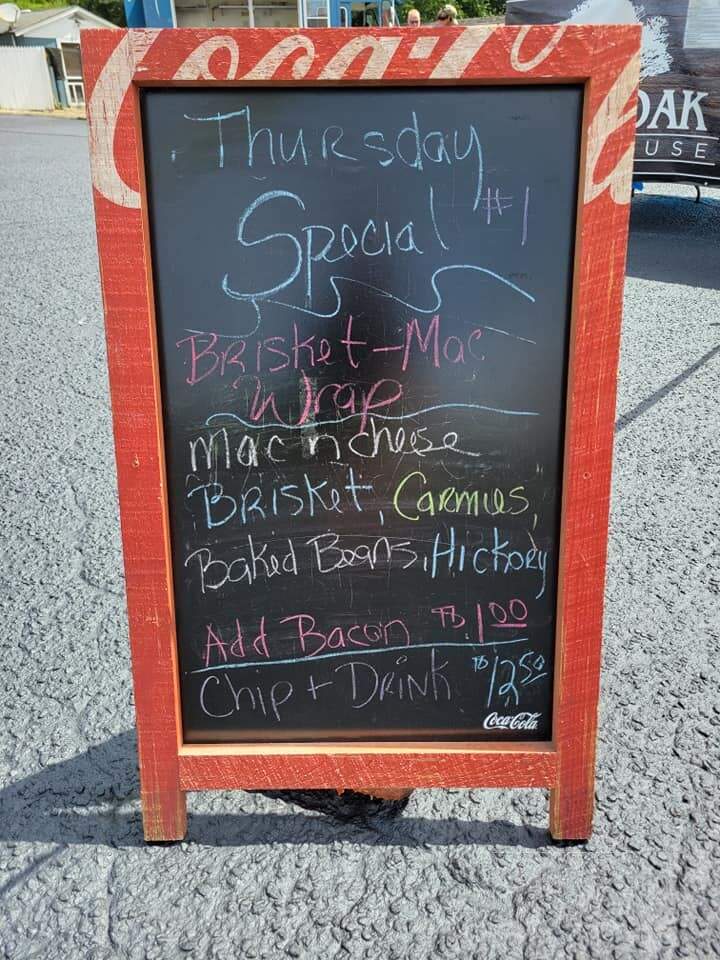 Coca-Cola
OAK
USE
Thursday
Special #1
Brisket-Mac
Wrap
Mac n cheese
Brisket, Carmies,
Baked Beans, Hickory
Add Bacon 1.00
Chip + Drink 12.50
Coca-Cola